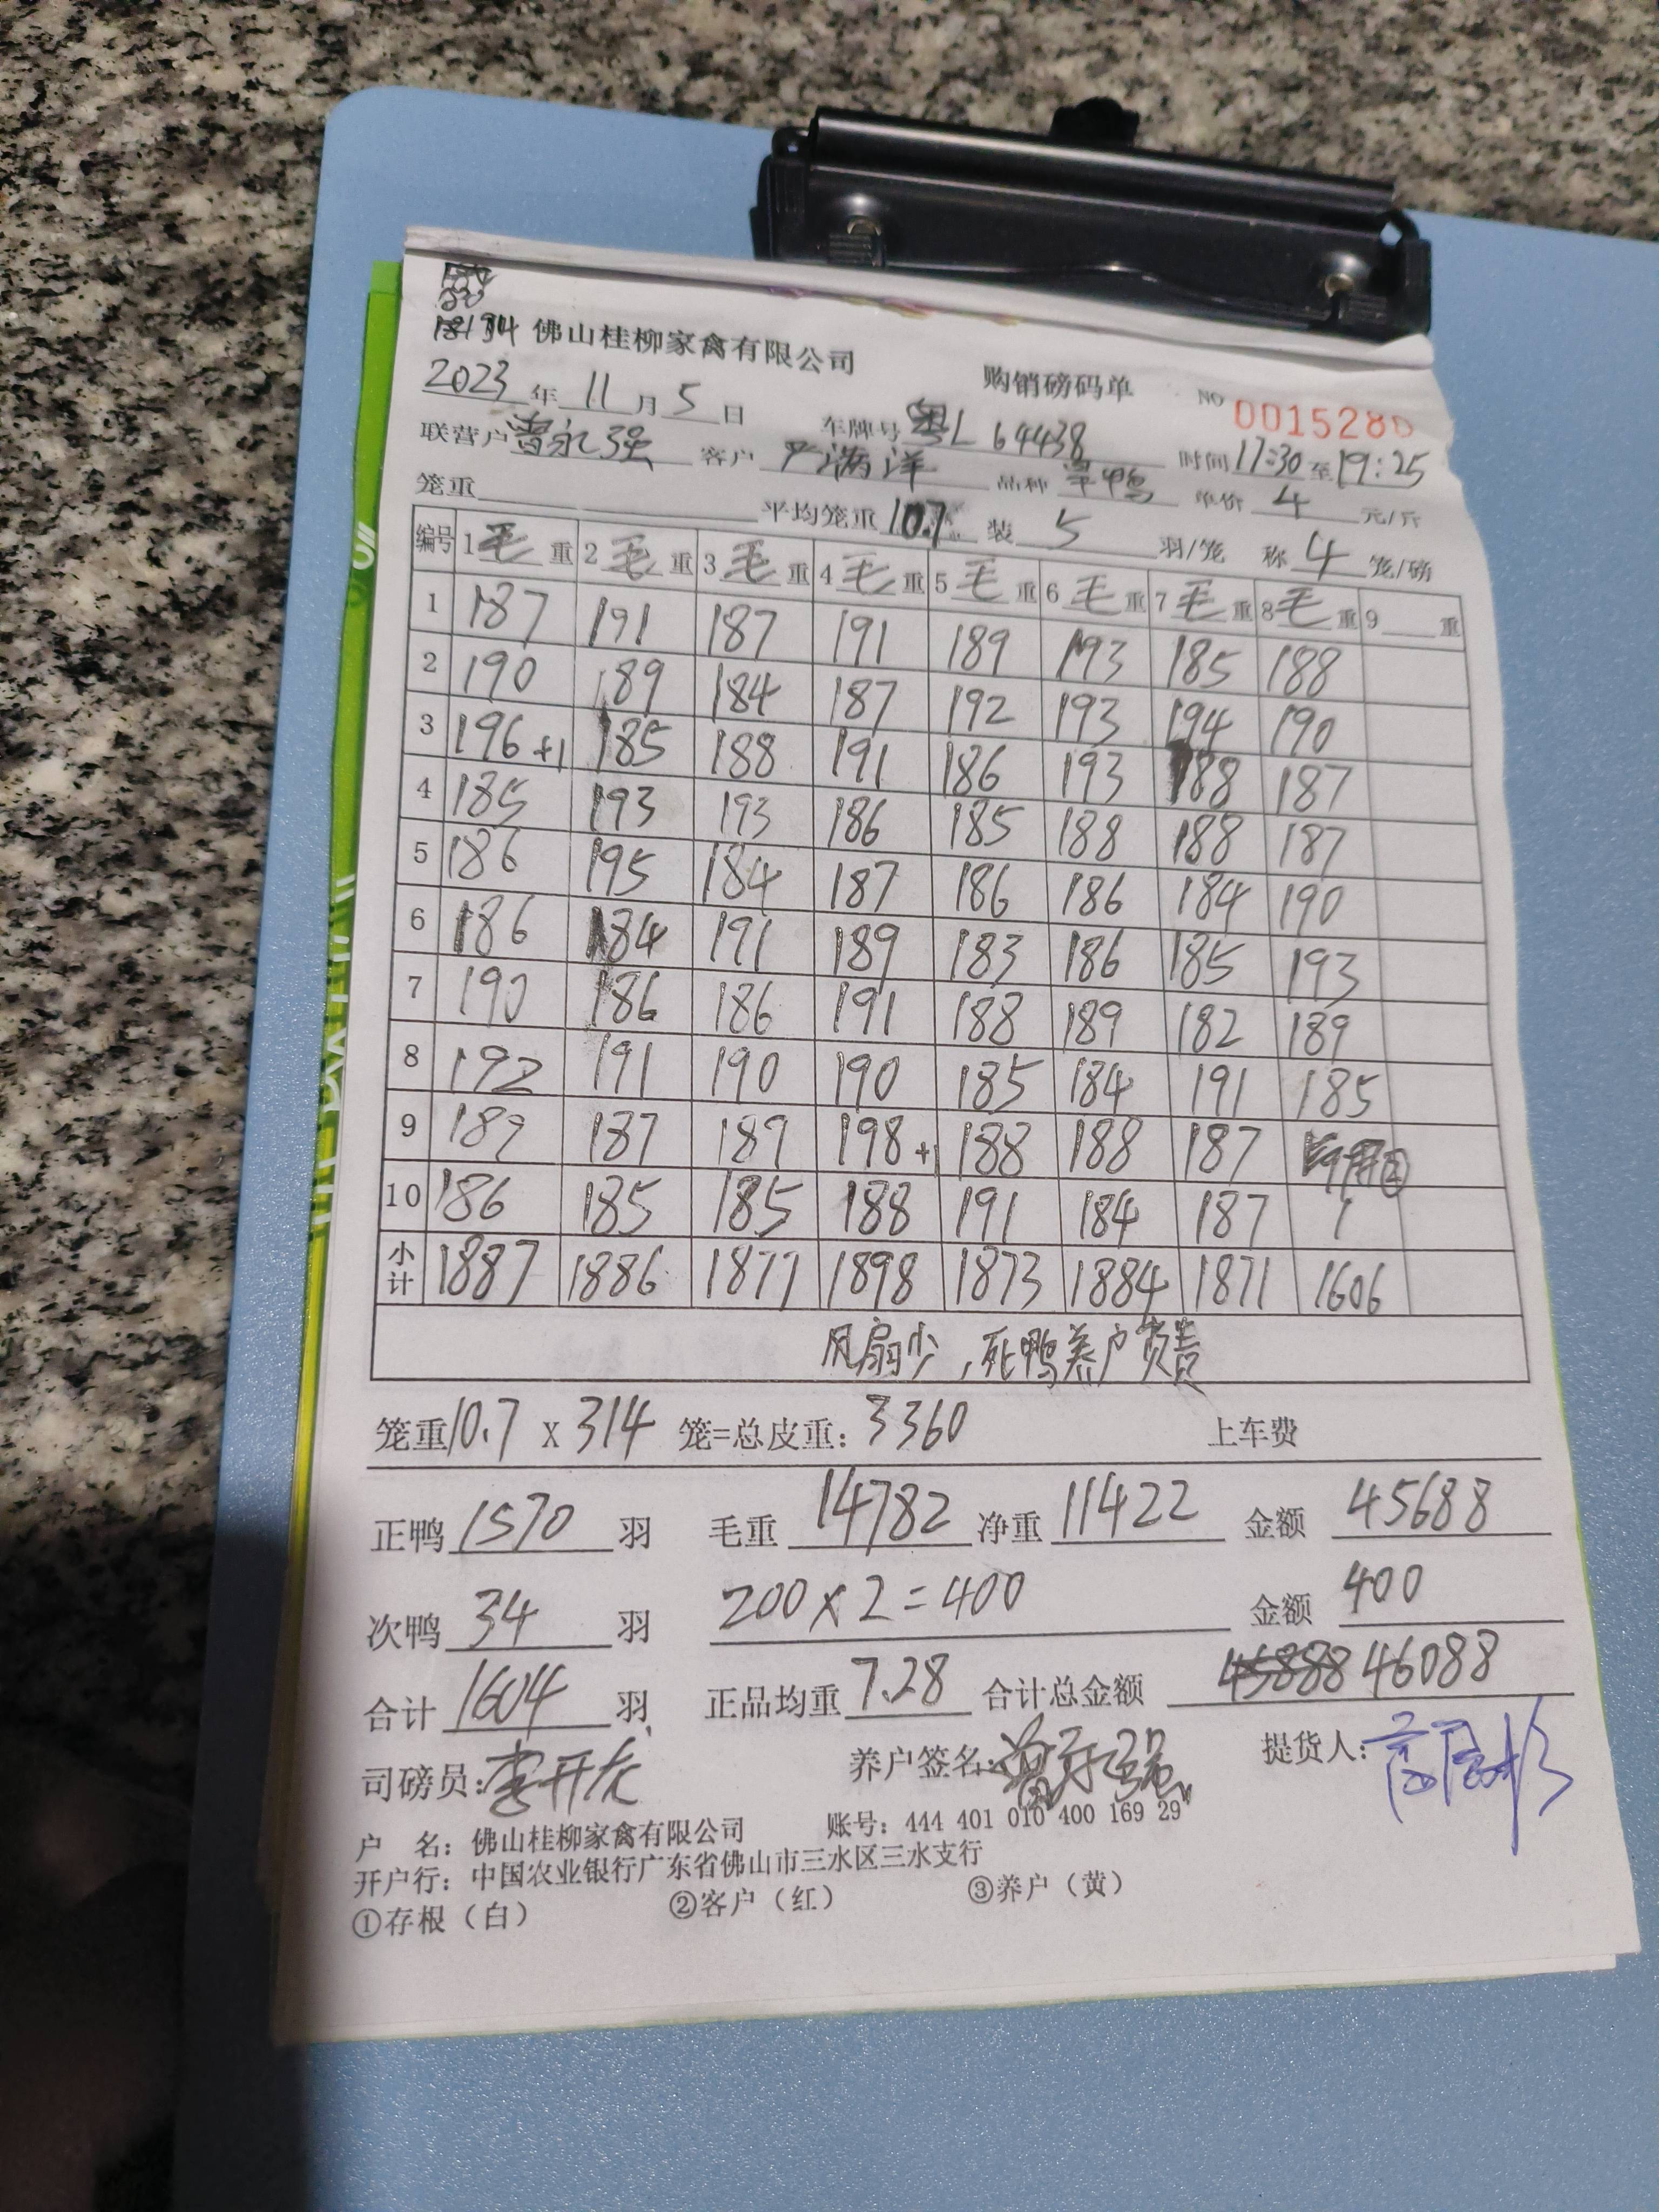 18194 佛山桂柳家禽有限公司 购销磅码单 NO 0015280
2023年 11月 5日 车牌号 粤L 64438 时间 17:30 至 19:25
联营户 曾永强 客户 严满洋 品种 旱鸭 单价 4 元/斤
笼重 平均笼重 10.7 装 5 羽/笼 称 4 笼/磅
编号 1毛重 2毛重 3毛重 4毛重 5毛重 6毛重 7毛重 8毛重 9 重
1 187 191 187 191 189 193 185 188
2 190 189 184 187 192 193 194 190
3 196+1 185 188 191 186 193 188 187
4 185 193 193 186 185 188 188 187
5 186 195 184 187 186 186 184 190
6 186 184 191 189 183 186 185 193
7 190 186 186 191 188 189 182 189
8 192 191 190 190 185 184 191 185
9 189 187 189 198+1 188 188 187
10 186 185 185 188 191 184 187 1
小计 1887 1886 1877 1898 1873 1884 1871 1606
风扇少，死鸭养户负责
笼重 10.7 X 314 笼=总皮重: 3360 上车费
正鸭 1570 羽 毛重 14782 净重 11422 金额 45688
次鸭 34 羽 200×2=400 金额 400
合计 1604 羽 正品均重 7.28 合计总金额 45888 46088
司磅员: 李开龙 养户签名: 曾永强 提货人:
户 名：佛山桂柳家禽有限公司 账号：444 401 010 400 169 29
开户行：中国农业银行广东省佛山市三水区三水支行
①存根（白） ②客户（红） ③养户（黄）